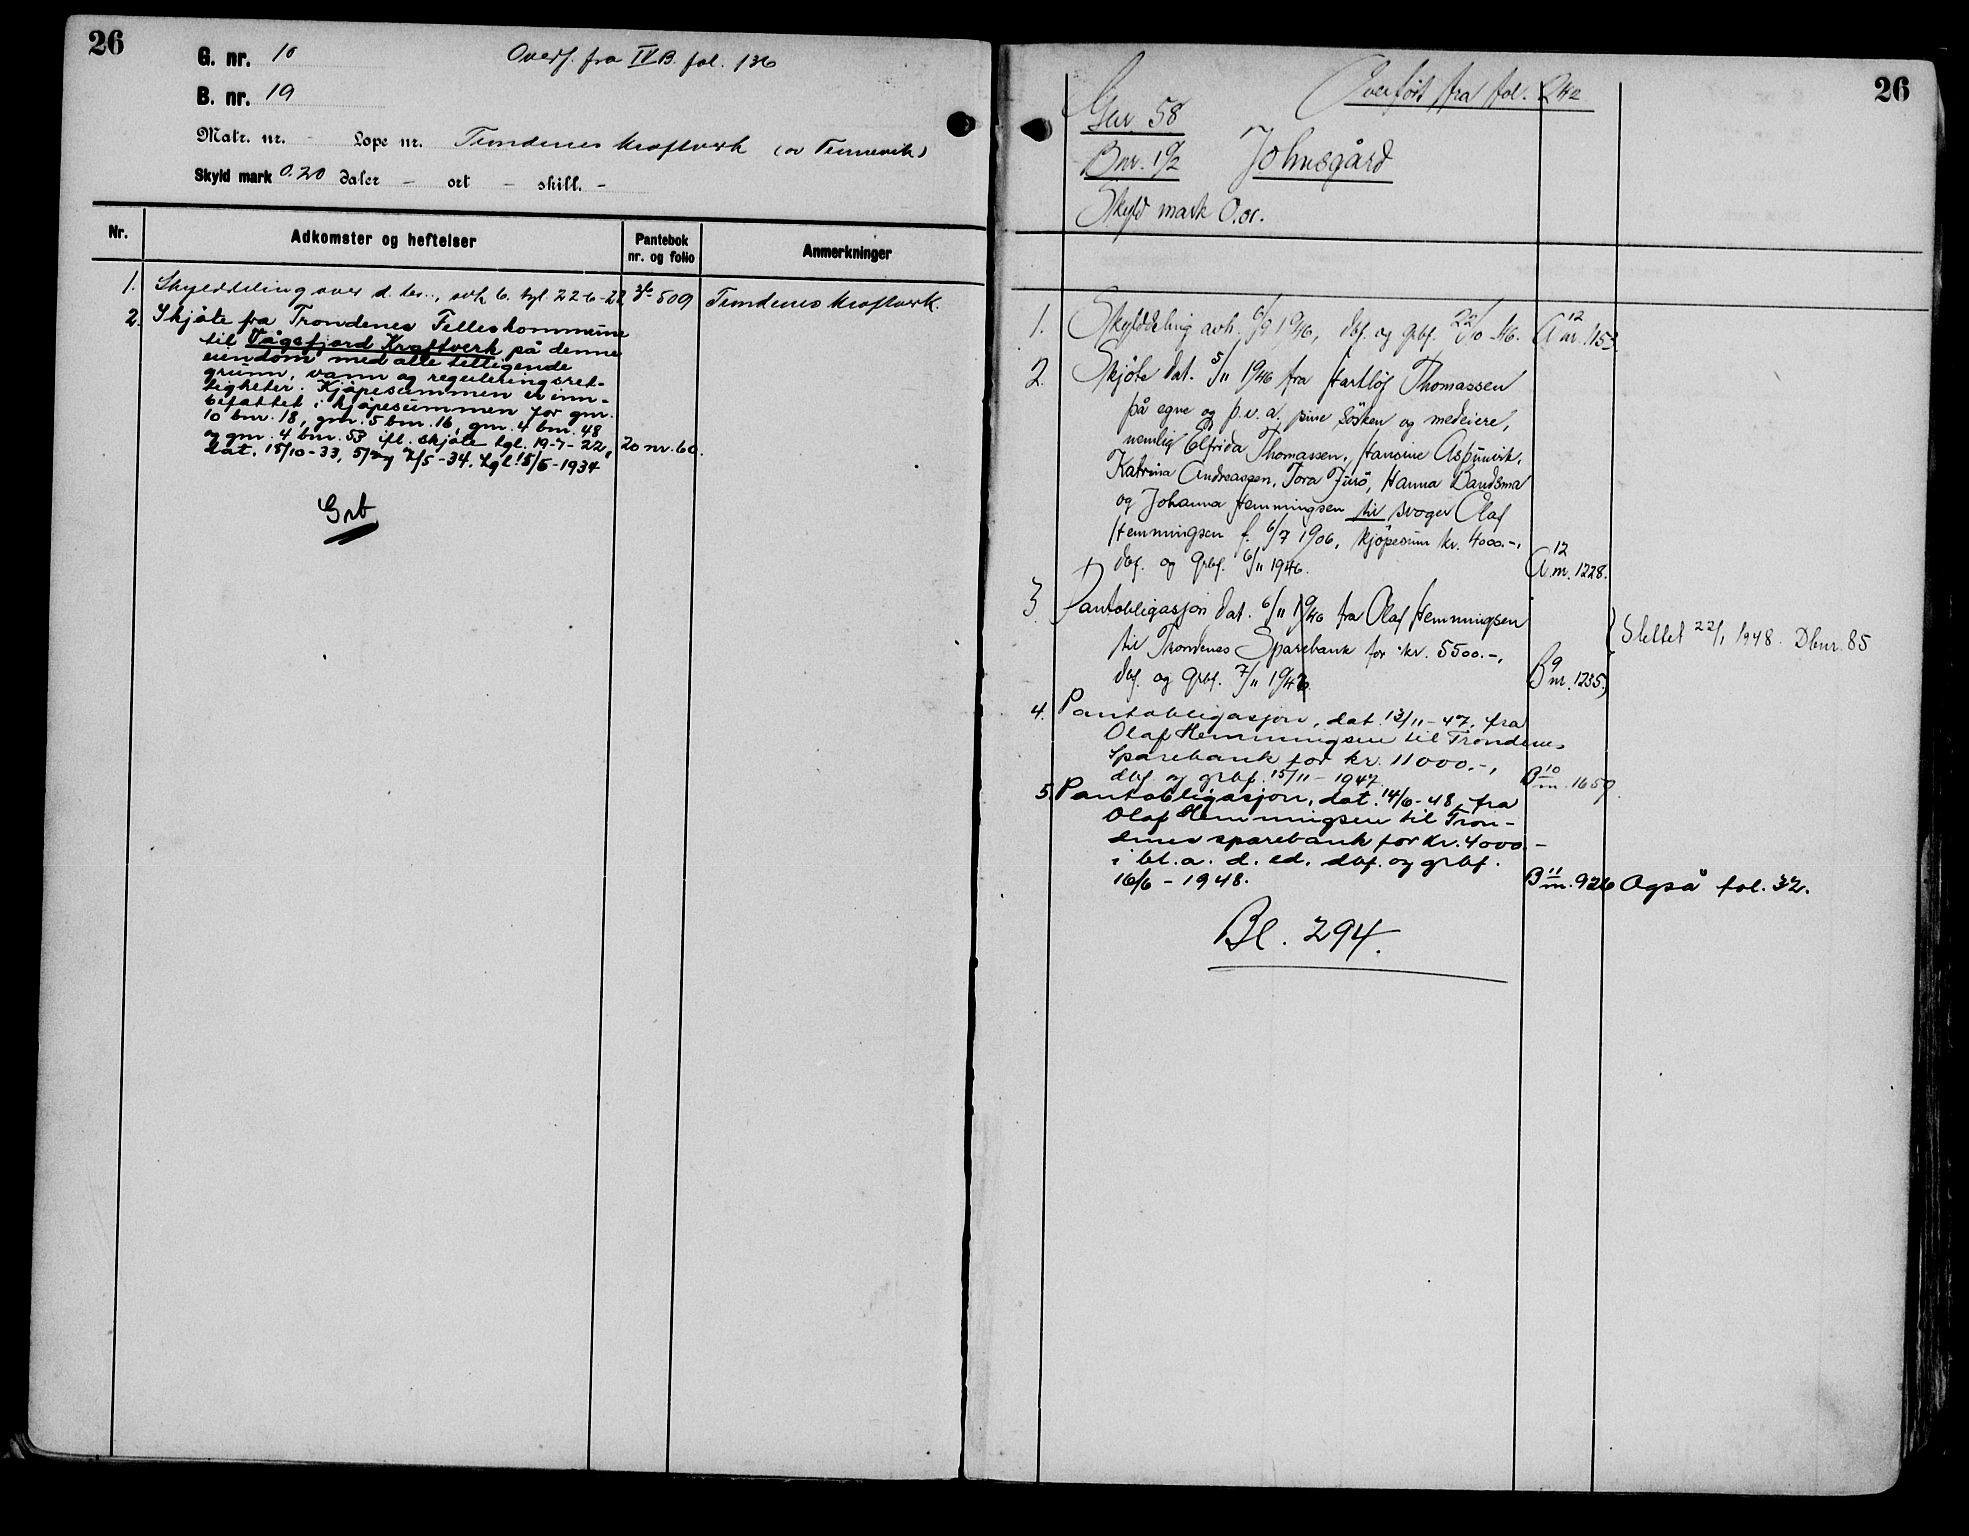 26
G. nr. 10
Overf. fra IV B. fol. 136
B. nr. 19
Matr. nr. - Løpe nr. Trondenes Kraftverk (av Tennevik)
Skyld mark 0.20 daler - ort - skill. -
Nr.
Adkomster og heftelser
Pantebok nr. og folio
Anmerkninger
1. Skylddeling over d. br., avh. 6. tgl. 22-6-22 509 Trondenes Kraftverk.
2. Skjöte fra Trondenes Felleskommune
til Vågsfjord Kraftverk på denne
eiendom med alle tilligende
grunn, vann og reguleringsret-
tigheter. Kjöpesummen er inn-
befattet i kjöpesummen for gnr.
10 bnr. 18, gnr. 5 bnr. 16, gnr. 4 bnr. 48
og gnr. 4 bnr. 53 ifl. skjöte tgl. 19-7-22,
dat. 15/10-33, 5/2 og 2/5-34. tgl. 15/5-1934 20 nr. 60.
Grb
26
Overfört fra fol. 242
Gnr. 58
Bnr. 192 Johnsgård
Skyld mark 0.01.
1. Skylddeling avh. 6/9 1946, dbf. og grbf. 22/10-46. A 12 nr. 1153.
2. Skjöte dat. 5/11 1946 fra Hartlöf Thomassen
på egne og p.v.a. sine sösken og medeiere,
nemlig Elfrida Thomassen, Hansine Aspenvik,
Katrina Andreassen, Tora Jusö, Hanna Bandsma
og Johanna Hemmingsen til svoger Olaf
Hemmingsen f. 6/7 1906, kjöpesum kr. 4000.-,
dbf. og grbf. 6/11 1946. A 12 nr. 1228.
3 Pantobligasjon dat. 6/11 1946 fra Olaf Hemmingsen
til Trondenes Sparebank for kr. 5500.-,
dbf. og grbf. 7/11 1946. B 9 nr. 1235.
Slettet 22/1 1948. Dbnr. 85
4. Pantobligasjon, dat. 13/11-47, fra
Olaf Hemmingsen til Trondenes
Sparebank for kr. 11000.-,
dbf. og grbf. 15/11-1947. B 10 nr. 1659.
5. Pantobligasjon, dat. 14/6-48, fra
Olaf Hemmingsen til Tron-
denes sparebank for kr. 4000.-
i bl.a. d. ed. dbf. og grbf.
16/6-1948. B 11 nr. 926 Også fol. 32.
Bl. 294.